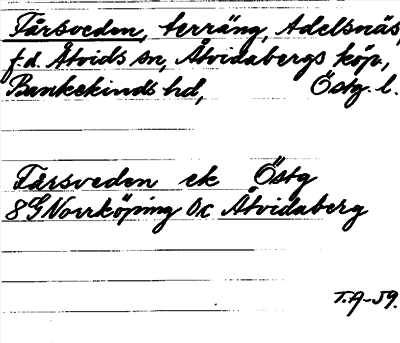 Fårsveden, terräng, Adelsnäs,
f.d. Åtvids sn, Åtvidabergs köp.,
Bankekinds hd, Östg. l.
Fårsveden ek Östg
8G Norrköping Öc Åtvidaberg
T.A-59.